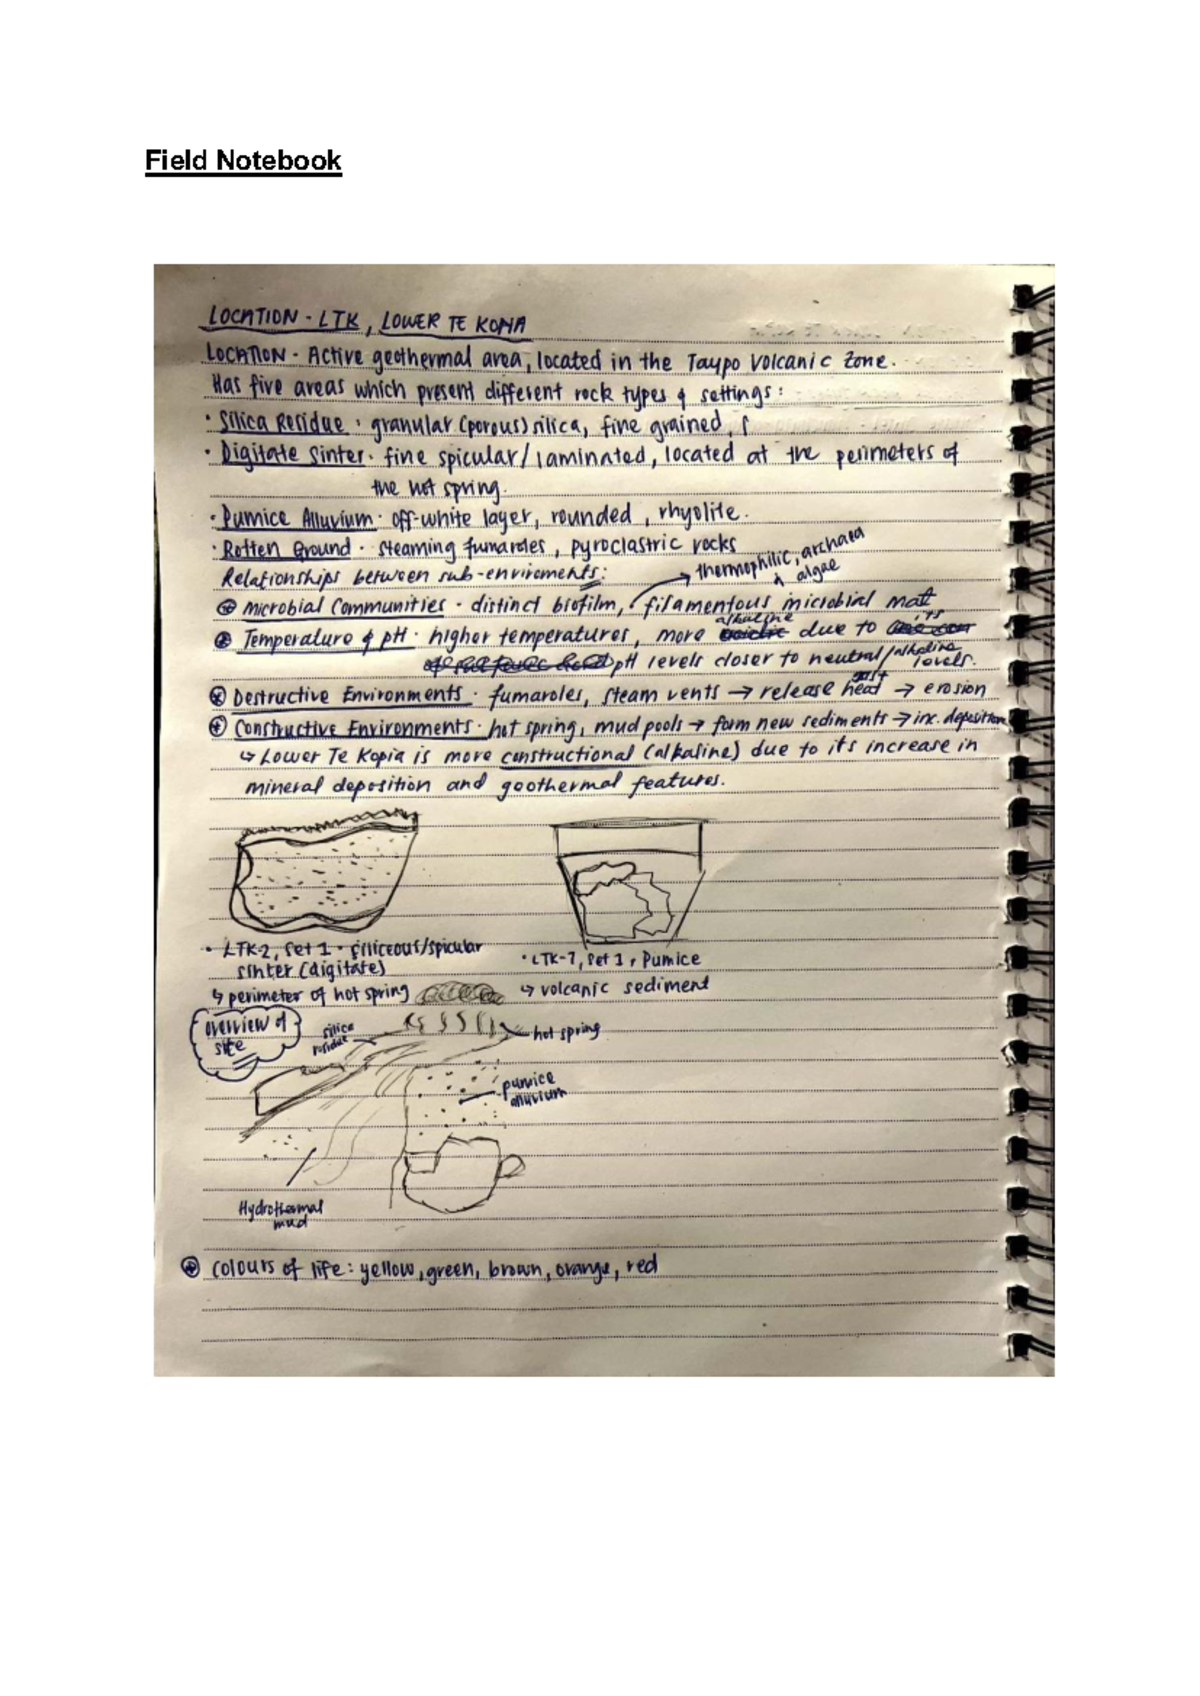 Field Notebook
LOCATION - LTK, LOWER TE KOPIA
LOCATION - Active geothermal area, located in the Taupo Volcanic Zone.
Has five areas which present different rock types & settings:
· Silica Residue : granular (porous) silica, fine grained,
· Digitate Sinter · fine spicular/laminated, located at the perimeters of
the hot spring.
· Pumice Alluvium · off-white layer, rounded, rhyolite.
· Rotten Ground · steaming fumaroles, pyroclastric rocks
thermophilic, archaea
& algae
Relationships between sub-enviroments:
* Microbial Communities · distinct biofilm, filamentous microbial mat
* Temperature & pH · higher temperatures, more alkaline due to its
pH levels closer to neutral/alkaline levels.
* Destructive Environments · fumaroles, steam vents → release heat → erosion
* Constructive Environments · hot spring, mud pools → form new sediments → inc. deposition
↳ Lower Te Kopia is more constructional (alkaline) due to its increase in
mineral deposition and goothermal features.
· LTK-2, Set 1 · siliceous/spicular
sinter (digitate)
↳ perimeter of hot spring
· LTK-7, Set 1, Pumice
↳ volcanic sediment
overview of
site
silica
residue
hot spring
pumice
alluvium
Hydrothermal
mud
* colours of life: yellow, green, brown, orange, red